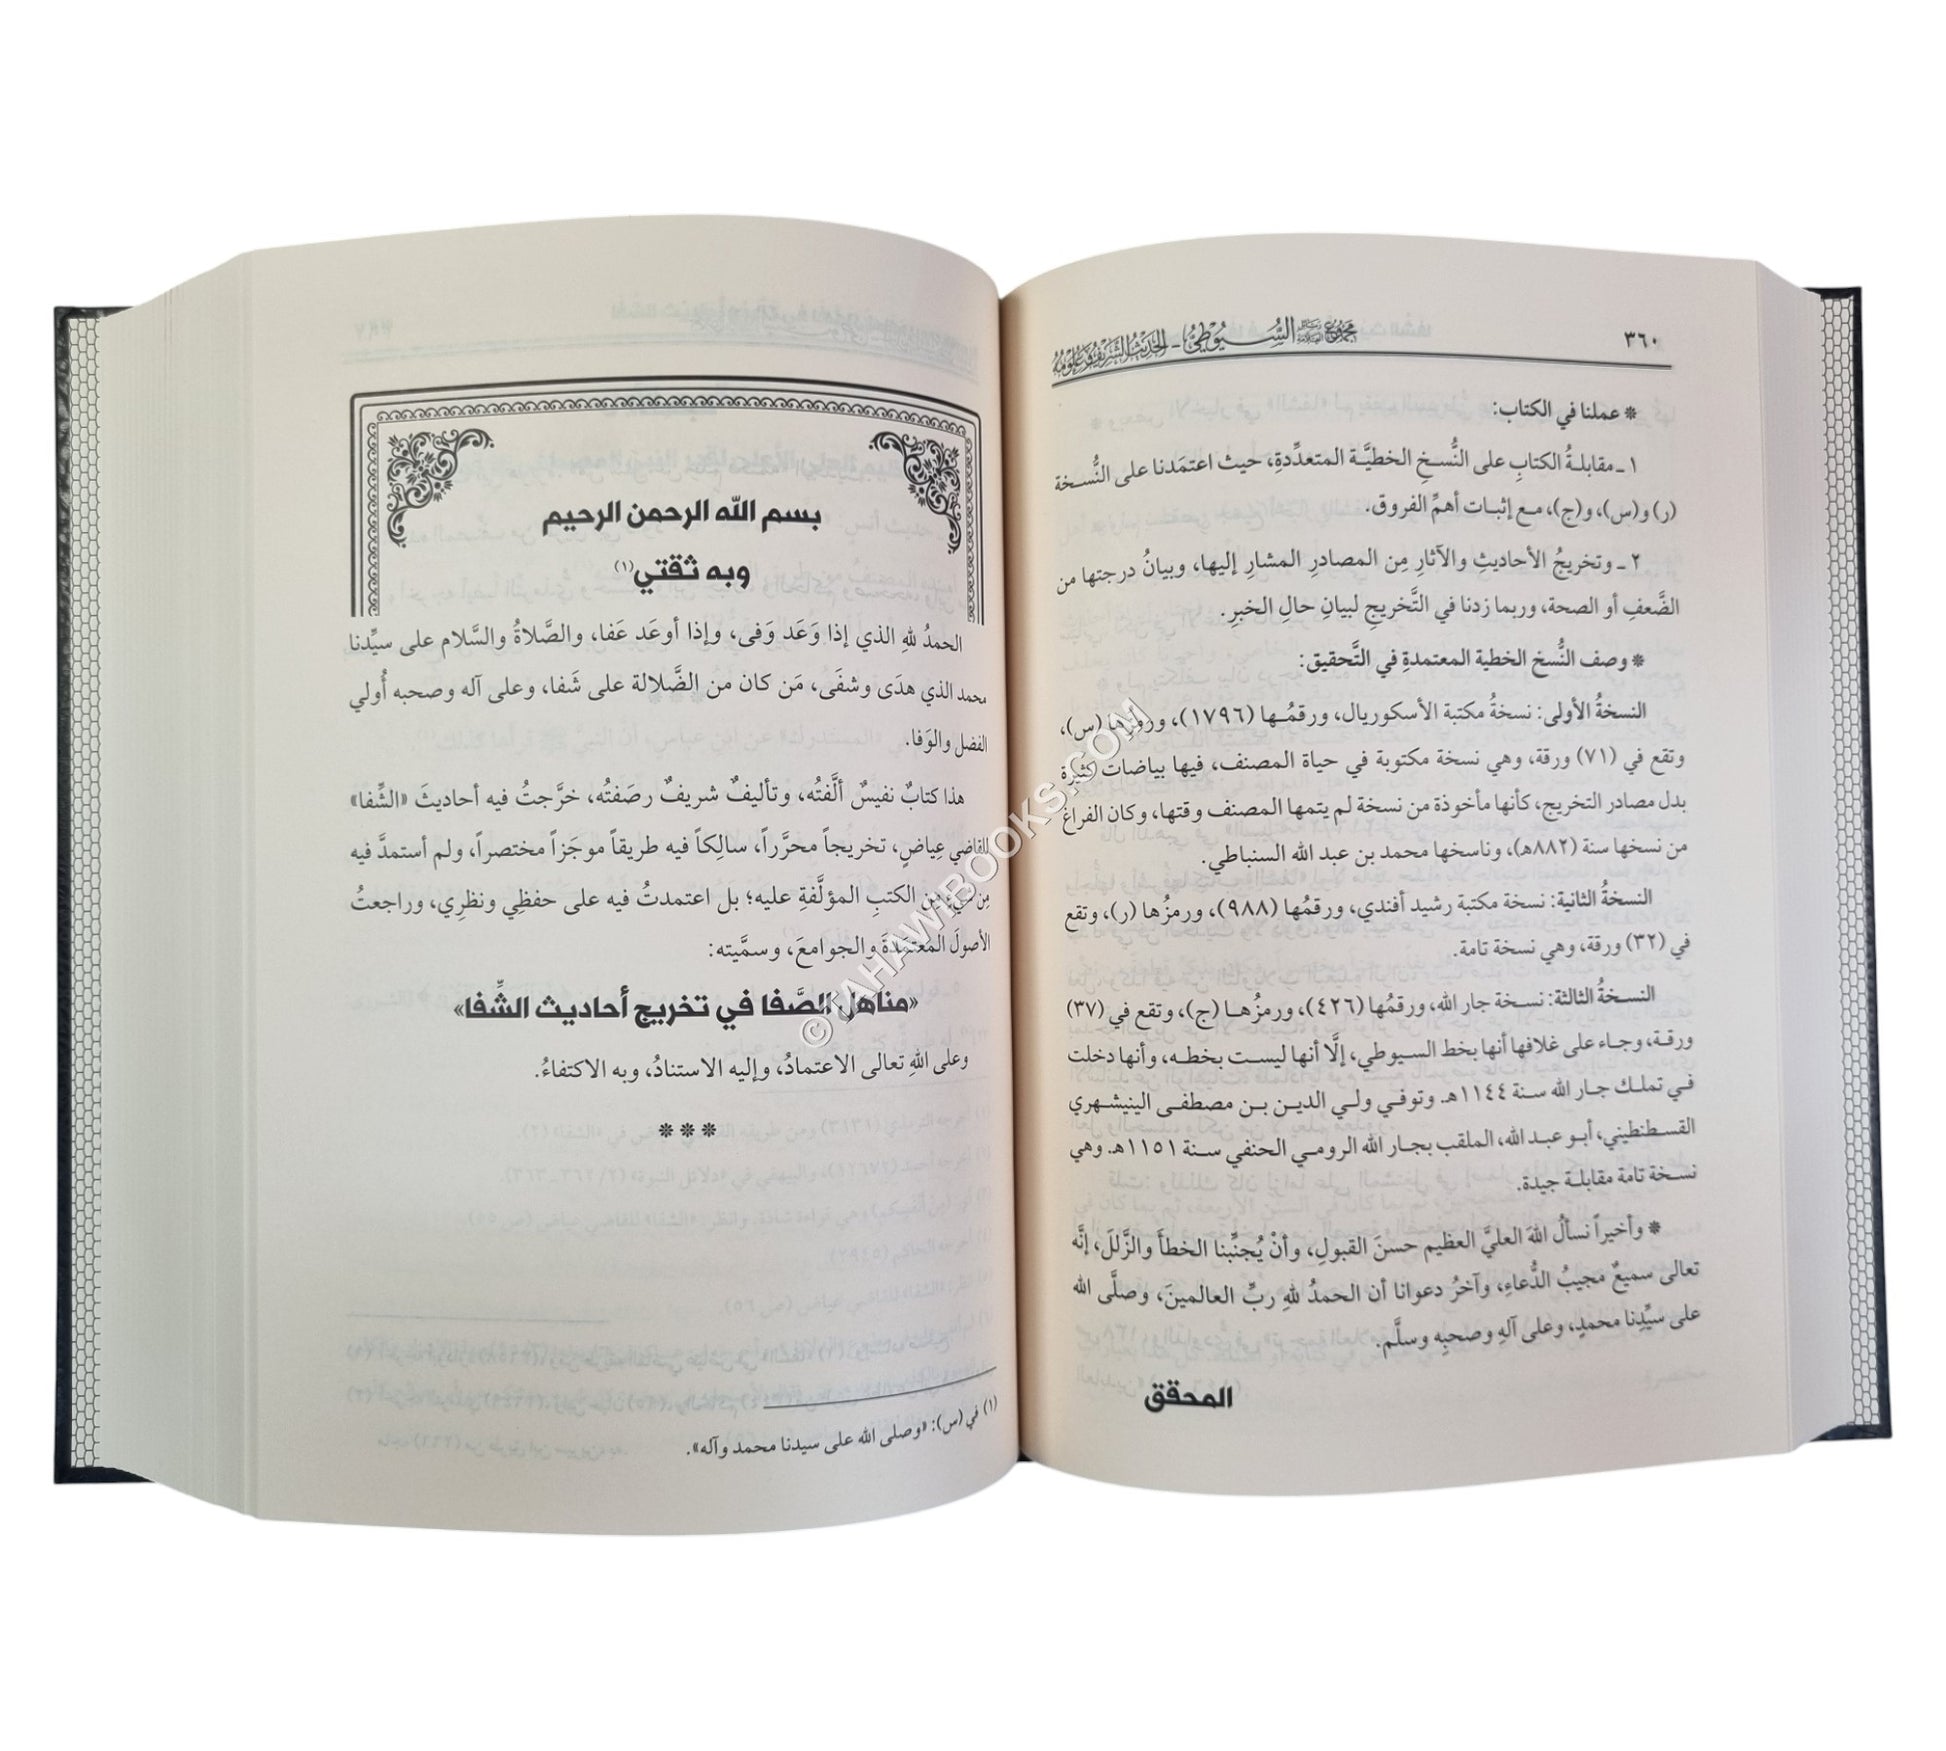 ٣٦٠
مجموع رسائل السيوطي - الحديث الشريف وعلومه
* عملنا في الكتاب:
١ ـ مقابلةُ الكتابِ على النُّسخِ الخطيَّة المتعدِّدةِ، حيث اعتمَدنا على النُّسخة
(ر) و(س)، و(ج)، مع إثبات أهمِّ الفروق.
٢ ـ وتخريجُ الأحاديثِ والآثارِ مِن المصادرِ المشارِ إليها، وبيانُ درجتها من
الضَّعفِ أو الصحة، وربما زدنا في التَّخريجِ لبيانِ حالِ الخبرِ.
* وصف النُّسخ الخطية المعتمدةِ في التَّحقيق:
النسخةُ الأولى: نسخةُ مكتبة الأسكوريال، ورقمُها (١٧٩٦)، ورمزُها (س)،
وتقع في (٧١) ورقة، وهي نسخة مكتوبة في حياة المصنف، فيها بياضات كثيرة
بدل مصادر التخريج، كأنها مأخوذة من نسخة لم يتمها المصنف وقتها، وكان الفراغ
من نسخها سنة (٨٨٢هـ)، وناسخها محمد بن عبد الله السنباطي.
النسخةُ الثانية: نسخة مكتبة رشيد أفندي، ورقمُها (٩٨٨)، ورمزُها (ر)، وتقع
في (٣٢) ورقة، وهي نسخة تامة.
النسخةُ الثالثة: نسخة جار الله، ورقمُها (٤٢٦)، ورمزُها (ج)، وتقع في (٣٧)
ورقة، وجاء على غلافها أنها بخط السيوطي، إلَّا أنها ليست بخطه، وأنها دخلت
في تملك جار الله سنة ١١٤٤هـ. وتوفي ولي الدين بن مصطفى الينيشهري
القسطنطيني، أبو عبد الله، الملقب بجار الله الرومي الحنفي سنة ١١٥١هـ. وهي
نسخة تامة مقابلة جيدة.
* وأخيراً نسألُ اللهَ العليَّ العظيم حسنَ القبولِ، وأنْ يُجنِّبنا الخطأَ والزَّللَ، إنَّه
تعالى سميعٌ مجيبُ الدُّعاءِ، وآخرُ دعوانا أن الحمدُ للهِ ربِّ العالمينَ، وصلَّى الله
على سيِّدِنا محمدٍ، وعلى آلهِ وصحبِه وسلَّم.
المحقق
بسم الله الرحمن الرحيم
وبه ثقتي(١)
الحمدُ للهِ الذي إذا وَعَد وَفى، وإذا أوعَد عَفا، والصَّلاةُ والسَّلام على سيِّدنا
محمد الذي هدَى وشفَى، مَن كان من الضَّلالة على شَفا، وعلى آله وصحبه أُولي
الفضل والوَفا.
هذا كتابٌ نفيسٌ ألَّفتُه، وتأليفٌ شريفٌ رصَفتُه، خرَّجتُ فيه أحاديثَ «الشِّفا»
للقاضي عِياضٍ، تخريجاً محرَّراً، سالِكاً فيه طريقاً موجَزاً مختصراً، ولم أستمدَّ فيه
مِن شيءٍ مِن الكتبِ المؤلَّفةِ عليه؛ بل اعتمدتُ فيه على حفظِي ونظرِي، وراجعتُ
الأصولَ المعتمَدةَ والجوامعَ، وسمَّيته:
«مناهل الصَّفا في تخريج أحاديث الشِّفا»
وعلى اللهِ تعالى الاعتمادُ، وإليه الاستنادُ، وبه الاكتفاءُ.
***
(١) في (س): «وصلى الله على سيدنا محمد وآله».
© TAHAWIBOOKS.COM